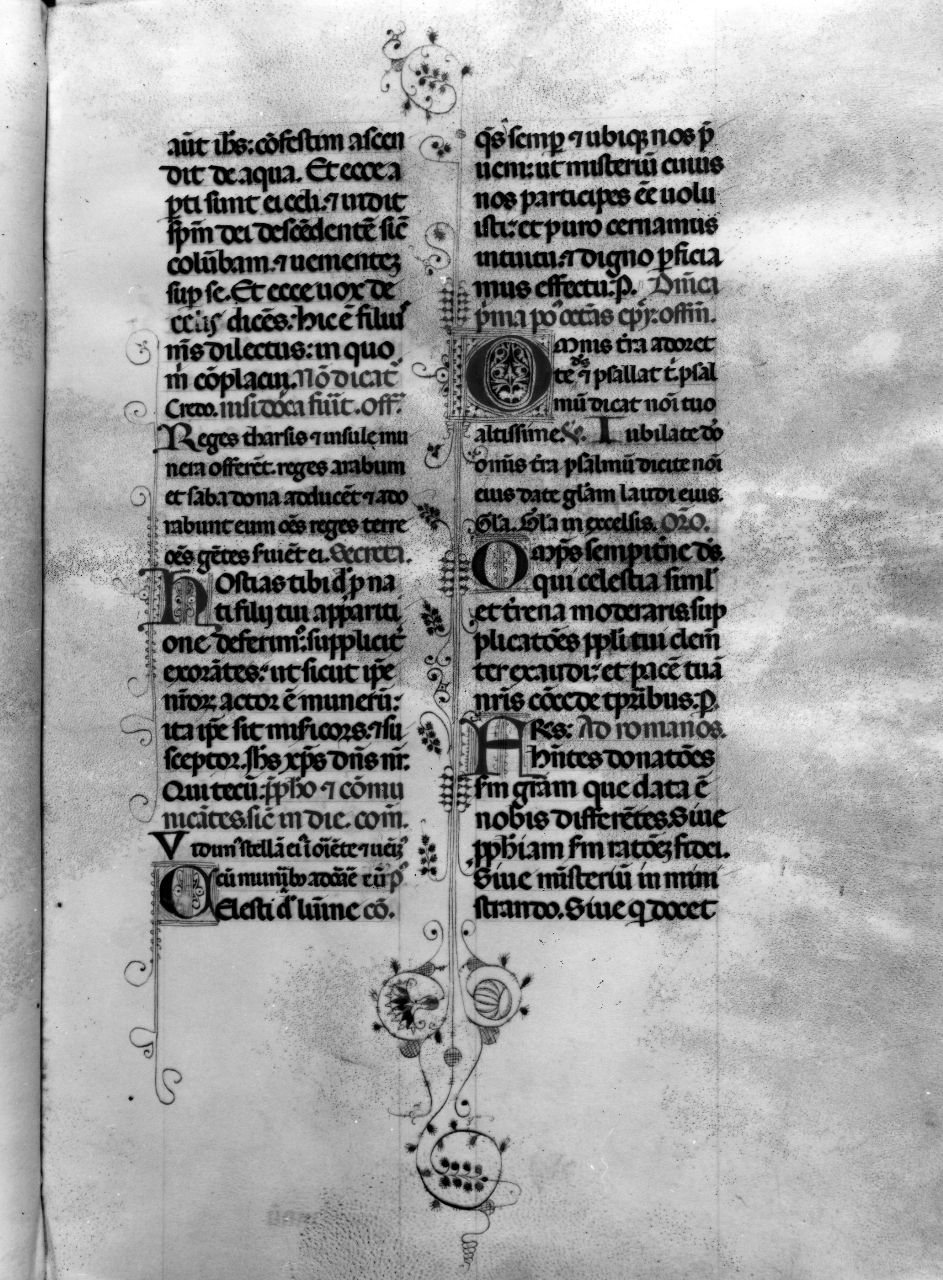 aūt ihs: cōfestim ascen
dit de aqua. Et ecce a
p̱ti sunt ei celi: ⁊ uidit
sp̄m dei descēdentē sic̄
colūbam. ⁊ uementeʒ
sup̱ se. Et ecce uox de
celis dicēs: hic ē filius
m̄s dilectus: in quo
m̄ cōplacui. Nō dicat᷑
Credo. nisi dn̄ica fuīt. Off.
Reges tharsis ⁊ insule mu
nera offerēt. reges arabum
et saba dona adducēt ⁊ ado
rabunt eum oēs reges terre
oēs gētes ſuiēt ei. Secreta.
Hostias tibi dn̄e p̱ na
ti filij tui appariti
one deferim᷒: suppliciť
exorātes: ut sicut ip̄e
nr̄oꝝ actor ē munerū:
ita ip̄e sit mīſicors: ⁊ su
sceptor. Jhs xp̄s dn̄s nr̄.
Qui tecū. p̄pho ⁊ cōmu
nicātes. sic̄ in die. com̄.
Vidim᷒ stellā ei᷒ ī oriēte ⁊ uēi᷒
cū munib᷒ adorāe
Celesti lum̄ne co᷒.
q̄s semp̱ ⁊ ubiq᷒ nos p̄
ueni: ut misteriū cuius
nos participes ēē uolu
isti: et puro cernamus
intuitu: ⁊ digno p̱ficia
mus effectu. P. Dn̄ica
p̓ma po᷒ octa᷒s epy. offm̄.
Omnis t̓ra adoret
te ⁊ psallat t̓. psal
mū dicat noī tuo
altissime. V̓. Iubilate dō
omīs t̓ra psalmū dicite noī
eius date gl̄am laudi eius.
Gl̄a. Gl̄a in excelsis. Or̄o.
Omp̄s sempit̓ne ds̄.
qui celestia siml̄
et t̓rena moderaris: sup
plicatōes ppl̄i tui clem̄
ter exaudi: et pacē tuā
nr̄is cōcede tp̱ribus. P.
Fr̄es: Ad romanos.
Hn̄tes donatōēs
s̄m gr̄am que data ē
nobis differētes. Siue
p̱phiam s̄m ratōeʒ fidei.
Siue mīsteriū in mini
strando. Siue q̱ docet